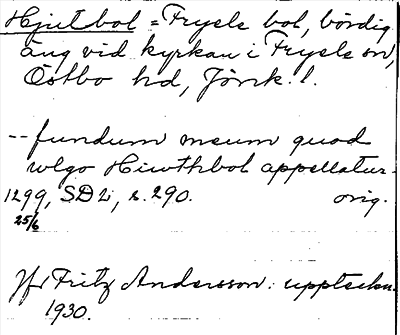 Hjutbol = Fryele bol, bördig
äng vid kyrkan i Fryele sn,
Östbo hd, Jönk. l.
-- fundum meum quod
wlgo Hiwthbol appellatur -
1299, SD 2, s. 290. orig.
25/6
Jfr Fritz Andersson: uppteckn.
1930.